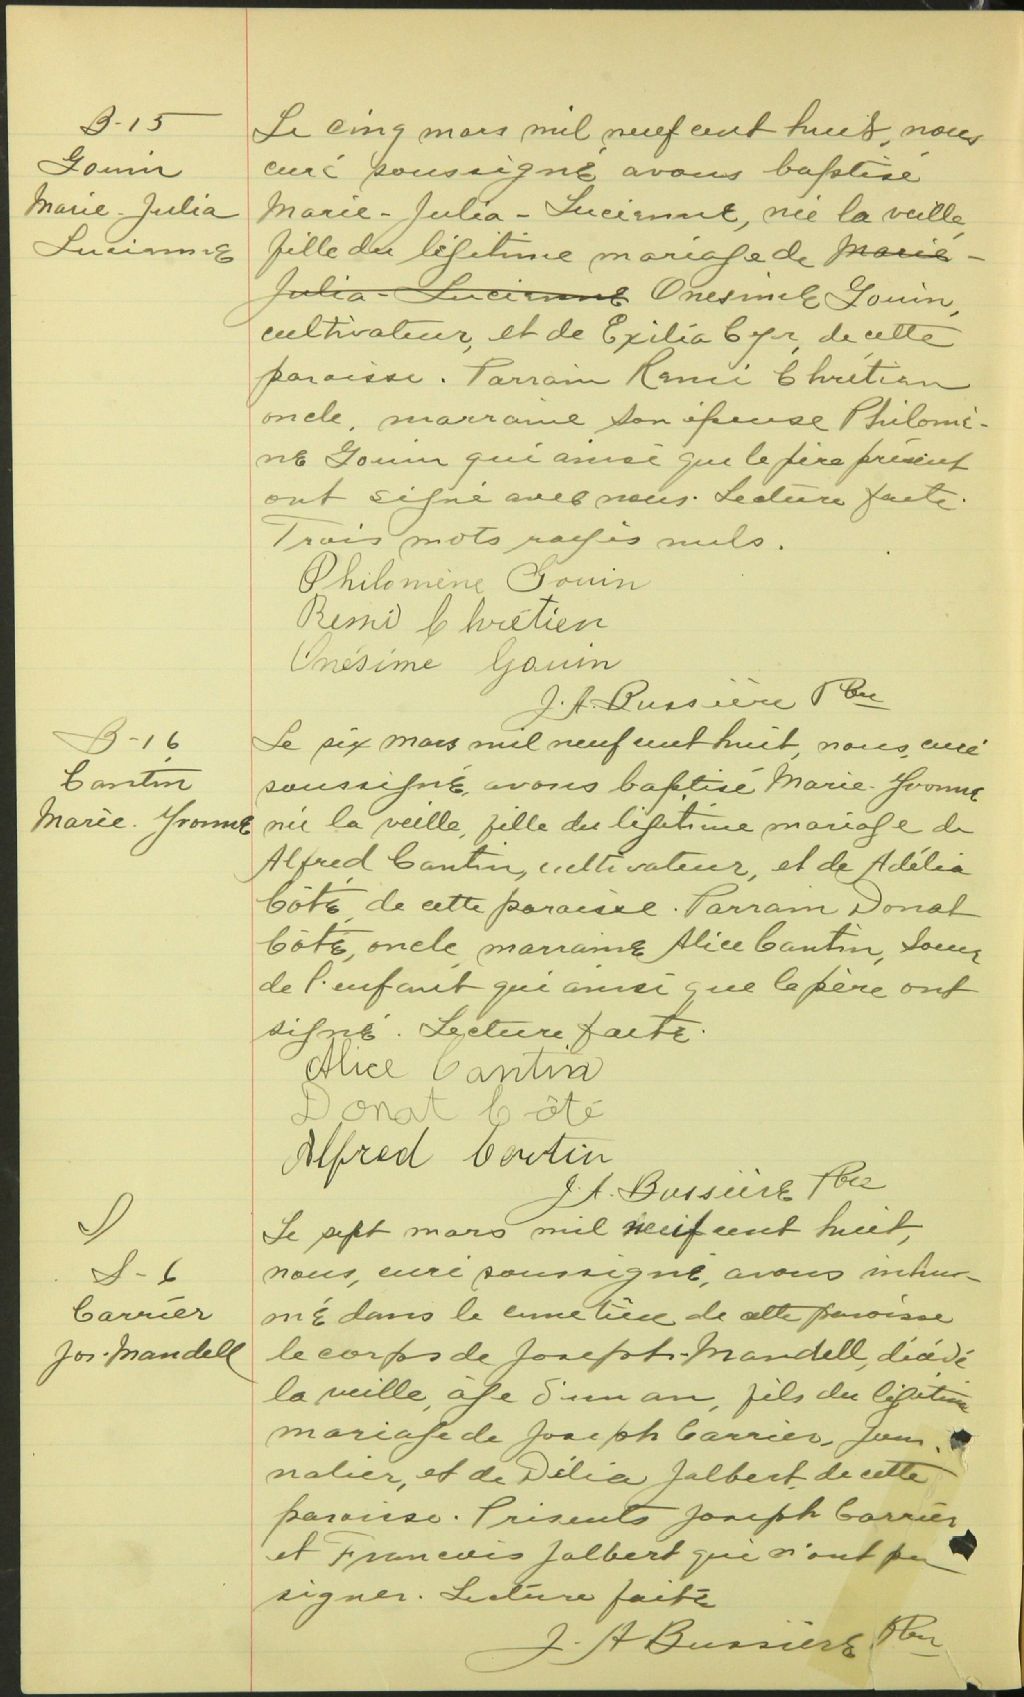 B-15
Gouin
Marie-Julia
Lucienne
Le cinq mars mil neuf cent huit, nous
curé soussigné avons baptisé
Marie-Julia-Lucienne, née la veille,
fille du légitime mariage de Marie-
Julia-Lucienne Onesime Gouin,
cultivateur, et de Exilia Cyr, de cette
paroisse. Parrain Remi Chrétien
oncle, marraine son épouse Philomè-
ne Gouin qui ainsi que le père présent
ont signé avec nous. Lecture faite.
Trois mots rayés nuls.
Philomène Gouin
Remi Chrétien
Onésime Gouin
J. A. Bussière Ptre
B-16
Cantin
Marie-Yvonne
Le six mars mil neuf cent huit, nous, curé
soussigné, avons baptisé Marie-Yvonne
née la veille, fille du légitime mariage de
Alfred Cantin, cultivateur, et de Adélia
Côté, de cette paroisse. Parrain Donat
Côté, oncle, marraine Alice Cantin, soeur
de l'enfant qui ainsi que le père ont
signé. Lecture faite.
Alice Cantin
Donat Côté
Alfred Cantin
J. A. Bussière Ptre
S
S-6
Carrier
Jos. Mandell
Le sept mars mil neuf cent huit,
nous, curé soussigné, avons inhu-
mé dans le cimetière de cette paroisse
le corps de Joseph-Mandell, décédé
la veille, âgé d'un an, fils du légitime
mariage de Joseph Carrier, jour-
nalier, et de Délia Jalbert, de cette
paroisse. Présents Joseph Carrier
et Francois Jalbert qui n'ont pu
signer. Lecture faite
J. A Bussière Ptre